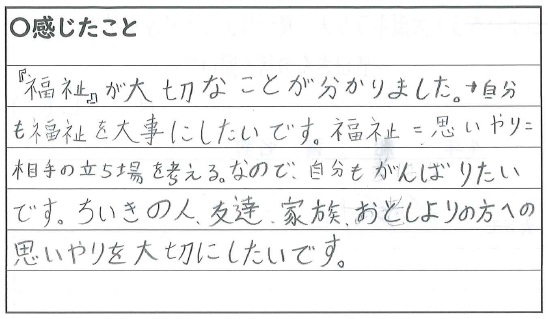 〇感じたこと
『福祉』が大切なことが分かりました。+自分
も福祉を大事にしたいです。福祉=思いやり=
相手の立ち場を考える。なので、自分もがんばりたい
です。ちいきの人、友達、家族、おとしよりの方への
思いやりを大切にしたいです。